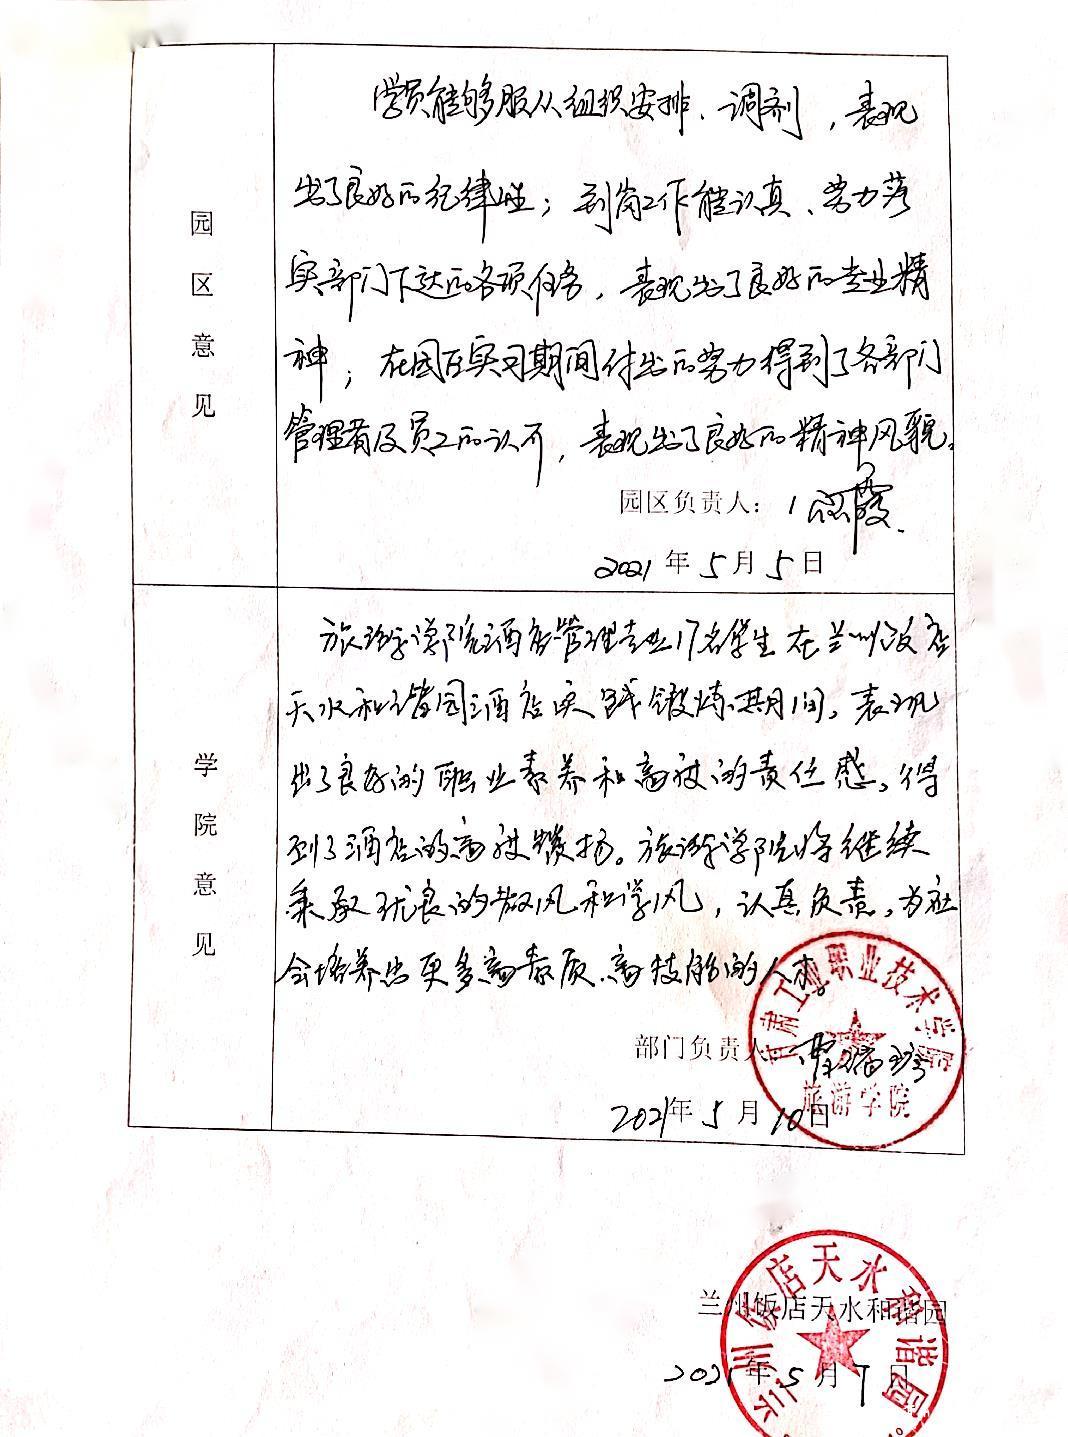 园区意见
学员能够服从组织安排、调剂，表现
出了良好的纪律性；到岗工作能认真、努力落
实部门下达的各项任务，表现出了良好的专业精
神；在园区实习期间付出的努力得到了各部门
管理者及员工的认可，表现出了良好的精神风貌。
园区负责人：
2021年5月5日
学院意见
旅游学院酒店管理专业17名学生在兰州饭店
天水和谐园酒店实践锻炼期间，表现
出了良好的职业素养和高度的责任感。得
到了酒店的高度赞扬。旅游学院将继续
秉承优良的教风和学风，认真负责，为社
会培养出更多高素质、高技能的人才。
部门负责人
2021年5月10日
甘肃工业职业技术学院
旅游学院
兰州饭店天水和谐园
2021年5月7日
兰州饭店天水和谐园